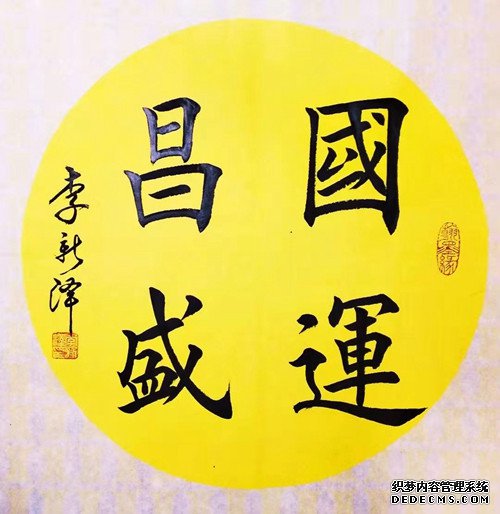 國運
昌盛
李新泽
织梦内容管理系统
DEDECMS.COM